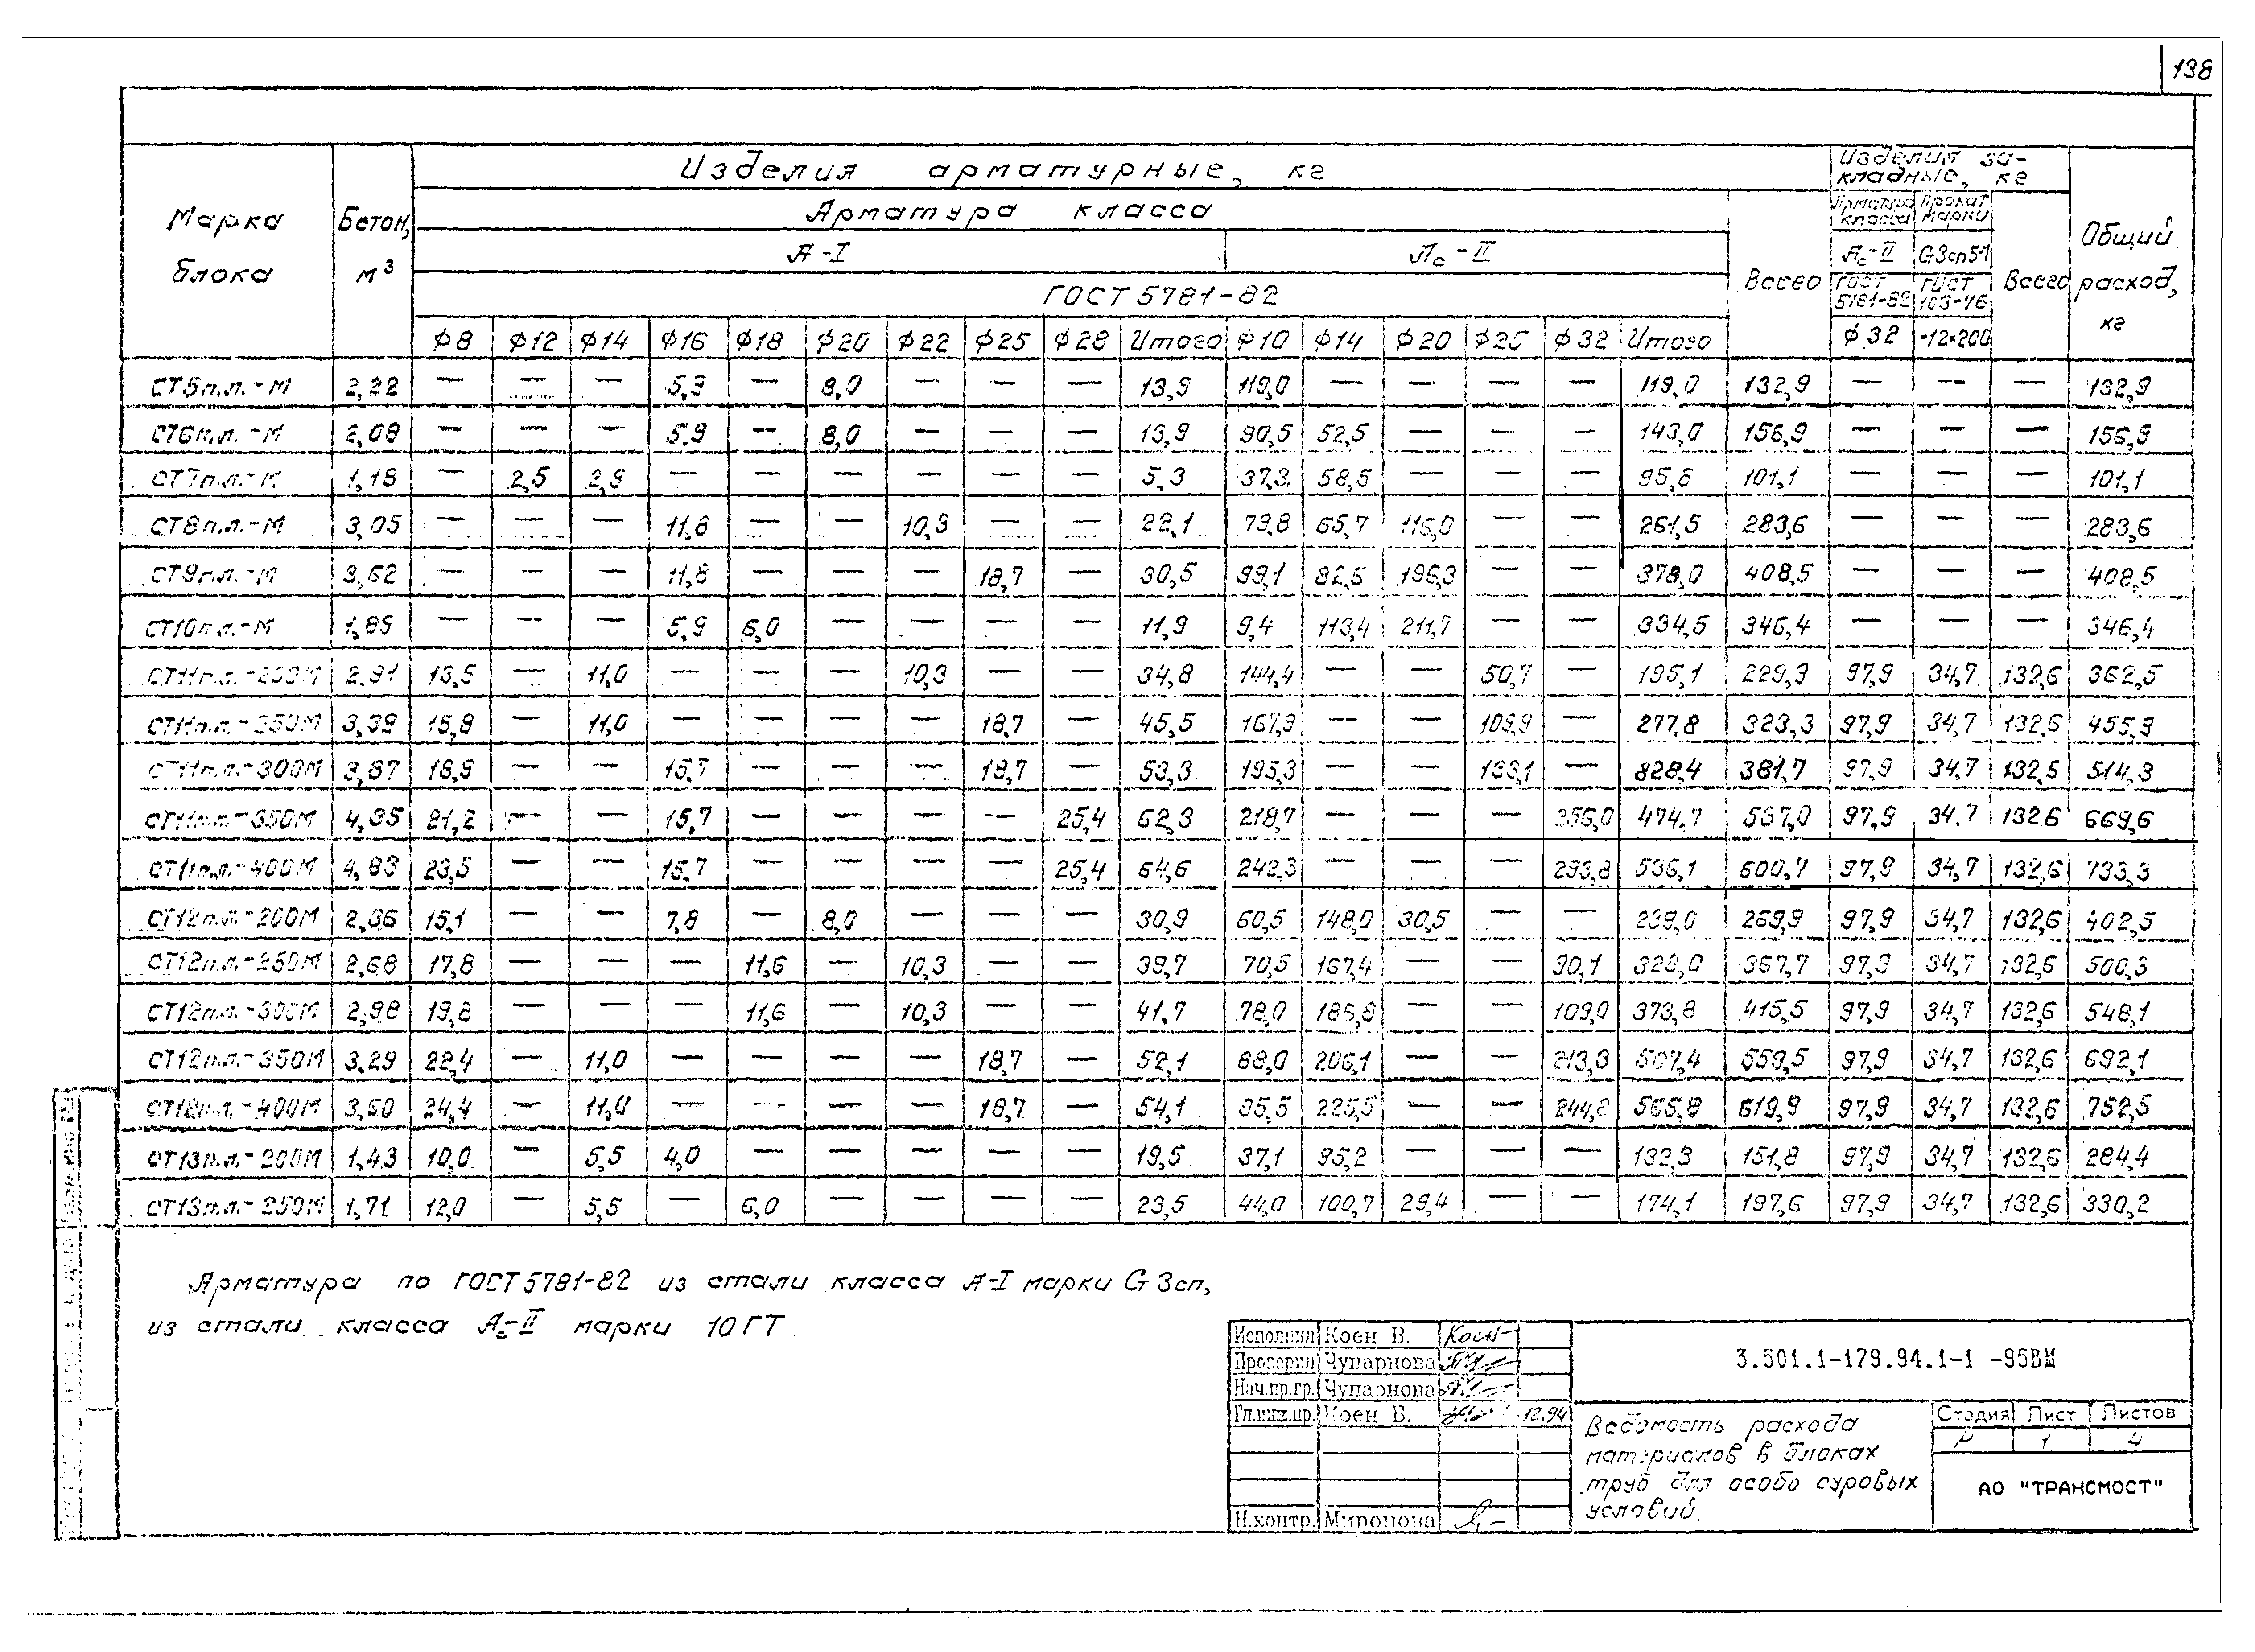 138
Изделия арматурные, кг
Изделия за-
кладные, кг
Марка
блока
Бетон,
м³
Арматура класса
Арматура
класса
Прокат
марки
Общий
расход,
кг
А-I
Ас-II
Всего
Ас-II
Ст3сп5-1
Всего
ГОСТ 5781-82
ГОСТ
5781-82
ГОСТ
103-76
ф8 ф12 ф14 ф16 ф18 ф20 ф22 ф25 ф28 Итого ф10 ф14 ф20 ф25 ф32 Итого ф32 -12×200
СТ5п.л.-М 2,22 — — — 5,9 — 8,0 — — — 13,9 119,0 — — — — 119,0 132,9 — — — 132,9
СТ6п.л.-М 2,08 — — — 5,9 — 8,0 — — — 13,9 90,5 52,5 — — — 143,0 156,9 — — — 156,9
СТ7п.л.-М 1,18 — 2,5 2,8 — — — — — — 5,3 37,3 58,5 — — — 95,8 101,1 — — — 101,1
СТ8п.л.-М 3,05 — — — 11,8 — — 10,3 — — 22,1 79,8 65,7 116,0 — — 261,5 283,6 — — — 283,6
СТ9п.л.-М 3,62 — — — 11,8 — — — 18,7 — 30,5 99,1 82,6 196,3 — — 378,0 408,5 — — — 408,5
СТ10п.л.-М 1,89 — — — 5,9 6,0 — — — — 11,9 9,4 113,4 211,7 — — 334,5 346,4 — — — 346,4
СТ11п.л.-200М 2,91 13,5 — 11,0 — — — 10,3 — — 34,8 144,4 — — 50,7 — 195,1 229,9 97,9 34,7 132,6 362,5
СТ11п.л.-250М 3,39 15,8 — 11,0 — — — — 18,7 — 45,5 167,9 — — 109,9 — 277,8 323,3 97,9 34,7 132,6 455,9
СТ11п.л.-300М 3,87 18,9 — — 15,7 — — — 18,7 — 53,3 195,3 — — 133,1 — 328,4 381,7 97,9 34,7 132,6 514,3
СТ11п.л.-350М 4,35 21,2 — — 15,7 — — — — 25,4 62,3 218,7 — — — 256,0 474,7 537,0 97,9 34,7 132,6 669,6
СТ11п.л.-400М 4,83 23,5 — — 15,7 — — — — 25,4 64,6 242,3 — — — 293,8 536,1 600,7 97,9 34,7 132,6 733,3
СТ12п.л.-200М 2,36 15,1 — — 7,8 — 8,0 — — — 30,9 60,5 148,0 30,5 — — 239,0 269,9 97,9 34,7 132,6 402,5
СТ12п.л.-250М 2,68 17,8 — — — 11,6 — 10,3 — — 39,7 70,5 167,4 — — 90,1 328,0 367,7 97,9 34,7 132,6 500,3
СТ12п.л.-300М 2,98 19,8 — — — 11,6 — 10,3 — — 41,7 78,0 186,8 — — 109,0 373,8 415,5 97,9 34,7 132,6 548,1
СТ12п.л.-350М 3,29 22,4 — 11,0 — — — — 18,7 — 52,1 88,0 206,1 — — 213,3 507,4 559,5 97,9 34,7 132,6 692,1
СТ12п.л.-400М 3,60 24,4 — 11,0 — — — — 18,7 — 54,1 95,5 225,5 — — 244,8 565,8 619,9 97,9 34,7 132,6 752,5
СТ13п.л.-200М 1,43 10,0 — 5,5 4,0 — — — — — 19,5 37,1 95,2 — — — 132,3 151,8 97,9 34,7 132,6 284,4
СТ13п.л.-250М 1,71 12,0 — 5,5 — 6,0 — — — — 23,5 44,0 100,7 29,4 — — 174,1 197,6 97,9 34,7 132,6 330,2
Арматура по ГОСТ 5781-82 из стали класса А-I марки Ст3сп,
из стали класса Ас-II марки 10ГТ.
Исполнил Коен В. Коен
Проверил Чупарнова
Нач.пр.гр. Чупарнова
Гл.инж.пр. Коен В. 12.94
Н.контр. Миронова
3.501.1-179.94.1-1 -95ВМ
Ведомость расхода
материалов в блоках
труб для особо суровых
условий.
Стадия Лист Листов
Р 1 4
АО "ТРАНСМОСТ"